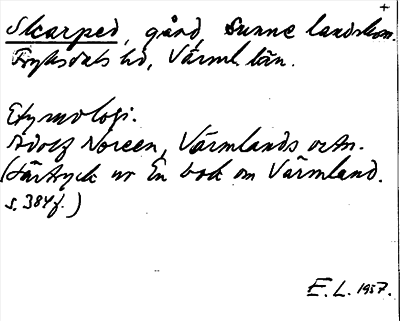 +
Skarped, gård, Sunne landskom.
Fryksdals hd, Värml. län.
Etymologi.
Adolf Noreen, Värmlands ortn.
(Särtryck ur En bok om Värmland.
s. 384f.)
E. L. 1957.